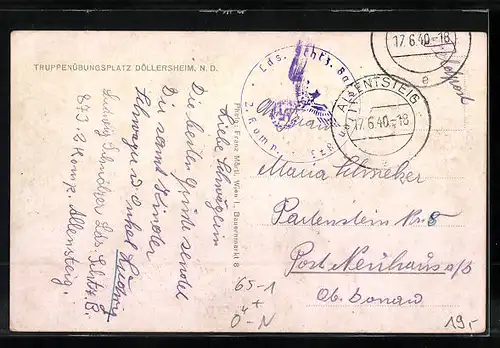 TRUPPENÜBUNGSPLATZ DÖLLERSHEIM, N. D.
Liebe Schwägerin
Die besten Grüße sendet
Dir samt Kinder
Schwager u. Onkel Ludwig
Ludwig Lds. Schtz. B.
873. 2 Komp. Allensteig.
Photo. Franz Mörtl, Wien I., Bauernmarkt 8
Lds. Schtz. Ba 873
2. Komp.
17.6.40.-18
e
ALLENTSTEIG
17.6.40.-18
Feldpost
Maria
Partenstein Nr. 8
Post Neuhaus a/D
Ob. Donau
65-1
+
Ö-N
19,-